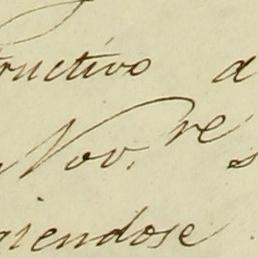 tructivo a
Nov.re s
giendose